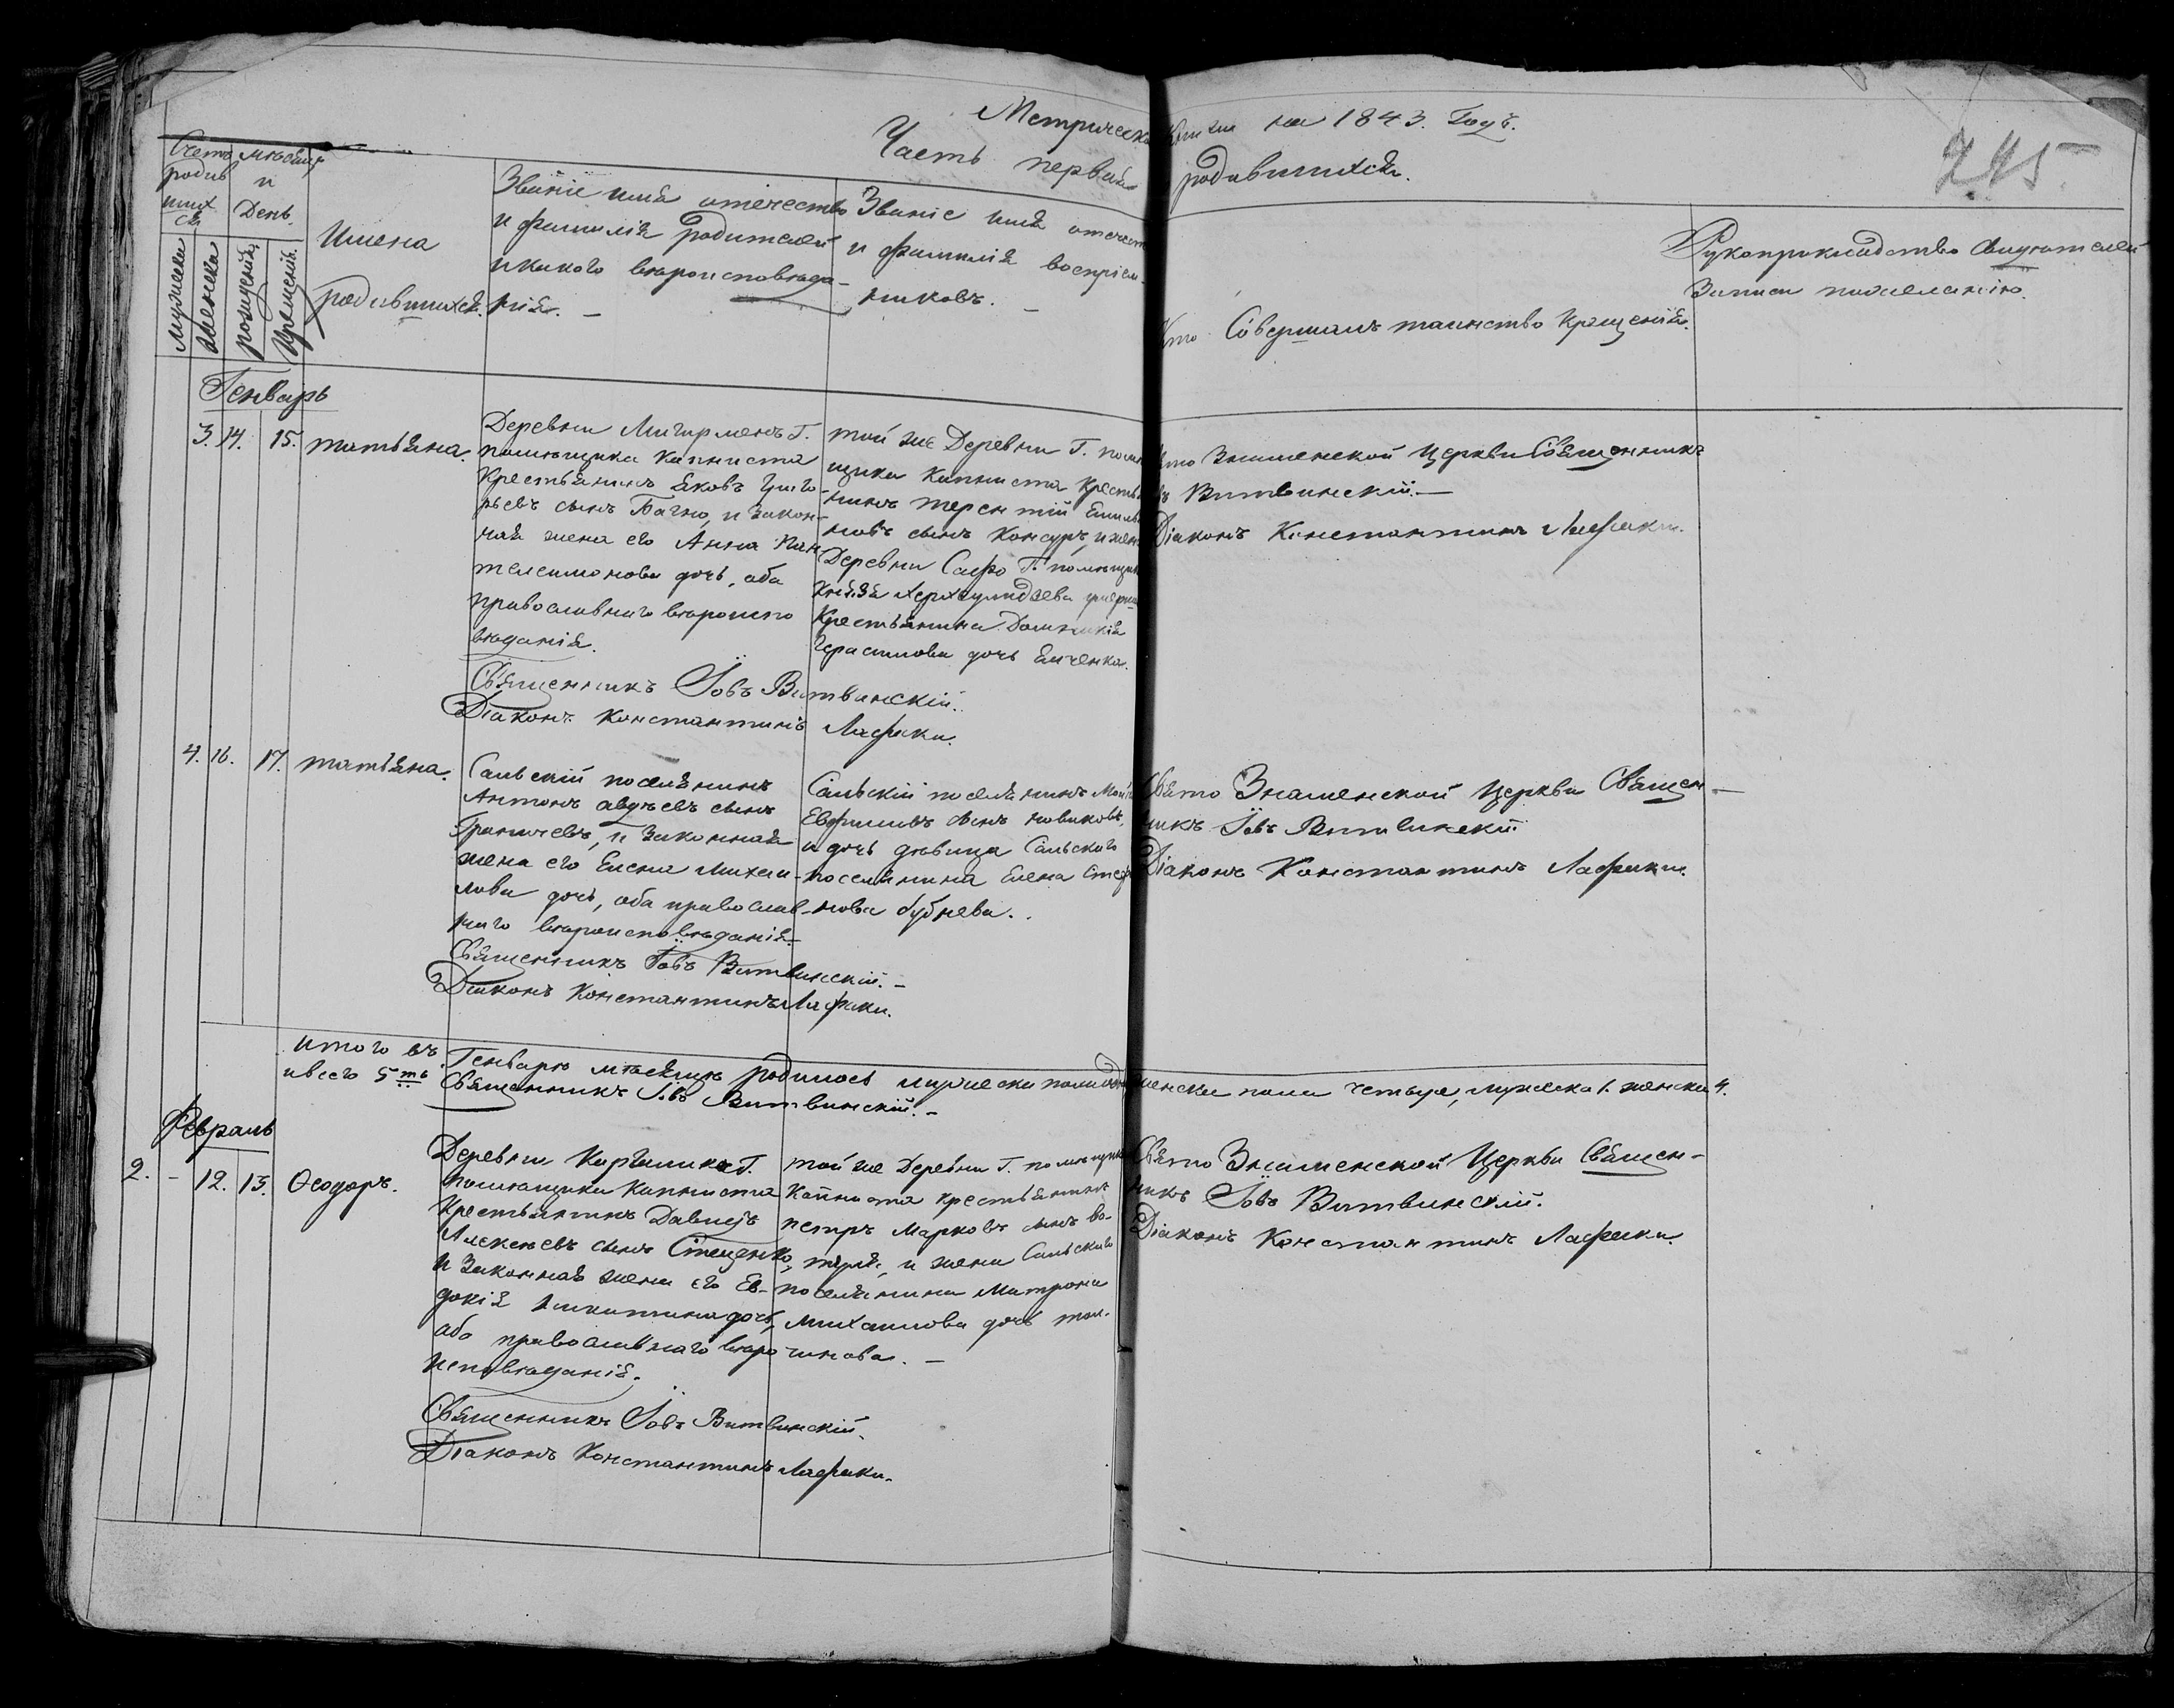 Метрическ книги на 1843. Годъ.
Часть первая родившихся.
245
Счетъ родив шихся
мѣсяцъ и День.
мужеска
женска
рожденія
крещенія.
Имена
родившихся.
Званіе имя отечество
и фамилія родителей
и какого вѣроисповѣда-
нія. –
Званіе имя отечест
и фамилія воспріем-
никовъ. –
Кто Совершалъ таинство Крещенія.
Рукоприкладство Свидѣтелей
Записи по желанію.
Генварь
3. 14. 15. татьяна.
Деревни Г.
помѣщика Капниста
Крестьянинъ Яковъ Григо-
рьевъ сынъ и закон-
ная жена его Анна Пан
телеимонова дочь, оба
православнаго вѣроиспо
вѣданія.
Священникъ Іовъ Витвинскій.
Діаконъ Константинъ Лафаки.
той же Деревни Г. помѣ
щика Капниста Кресть
нинъ терентій Емиль
новъ сынъ и
Деревни Г. помѣщик
Князя
Крестьянина Домникія
Герасимова дочь
Знаменской Церкви Священникъ
въ Витвинскій. –
Діаконъ Константинъ Лафаки.
4. 16. 17. татьяна.
Сальскій поселянинъ
Антонъ авдѣевъ сынъ
и законная
жена его Елена Михаи-
лова дочь, оба православ-
наго вѣроисповѣданія. –
Священникъ Іовъ Витвинскій. –
Діаконъ Константинъ Лафаки.
Сальскій поселянинъ
Евфимовъ сынъ новиковъ,
и дочь дѣвица Сальского
поселянина Елена Стеф
нова
Свято Знаменской Церкви Священ-
никъ Іовъ Витвинскій
Діаконъ Константинъ Лафаки.
итого въ Генварѣ мѣсяцѣ родилось мужеска пола женска пола четыре, мужеска 1. женска 4.
и всего 5ть Священникъ Іовъ Витвинскій. –
Февраль
2. – 12. 13. Ѳеодоръ.
Деревни Г.
помѣщика Капниста
Крестьянинъ Давидъ
Алексѣевъ сынъ Стеценко,
и законная жена его Ев-
докія Никитина дочь,
оба православнаго вѣро
исповѣданія.
Священникъ Іовъ Витвинскій.
Діаконъ Константинъ Лафаки.
той же Деревни Г. помѣщик
Капниста крестьянинъ
петръ Марковъ сынъ
и жена Сальского
поселянина Матрона
михаилова дочь
Свято Знаменской Церкви Священ-
никъ Іовъ Витвинскій.
Діаконъ Константинъ Лафаки.